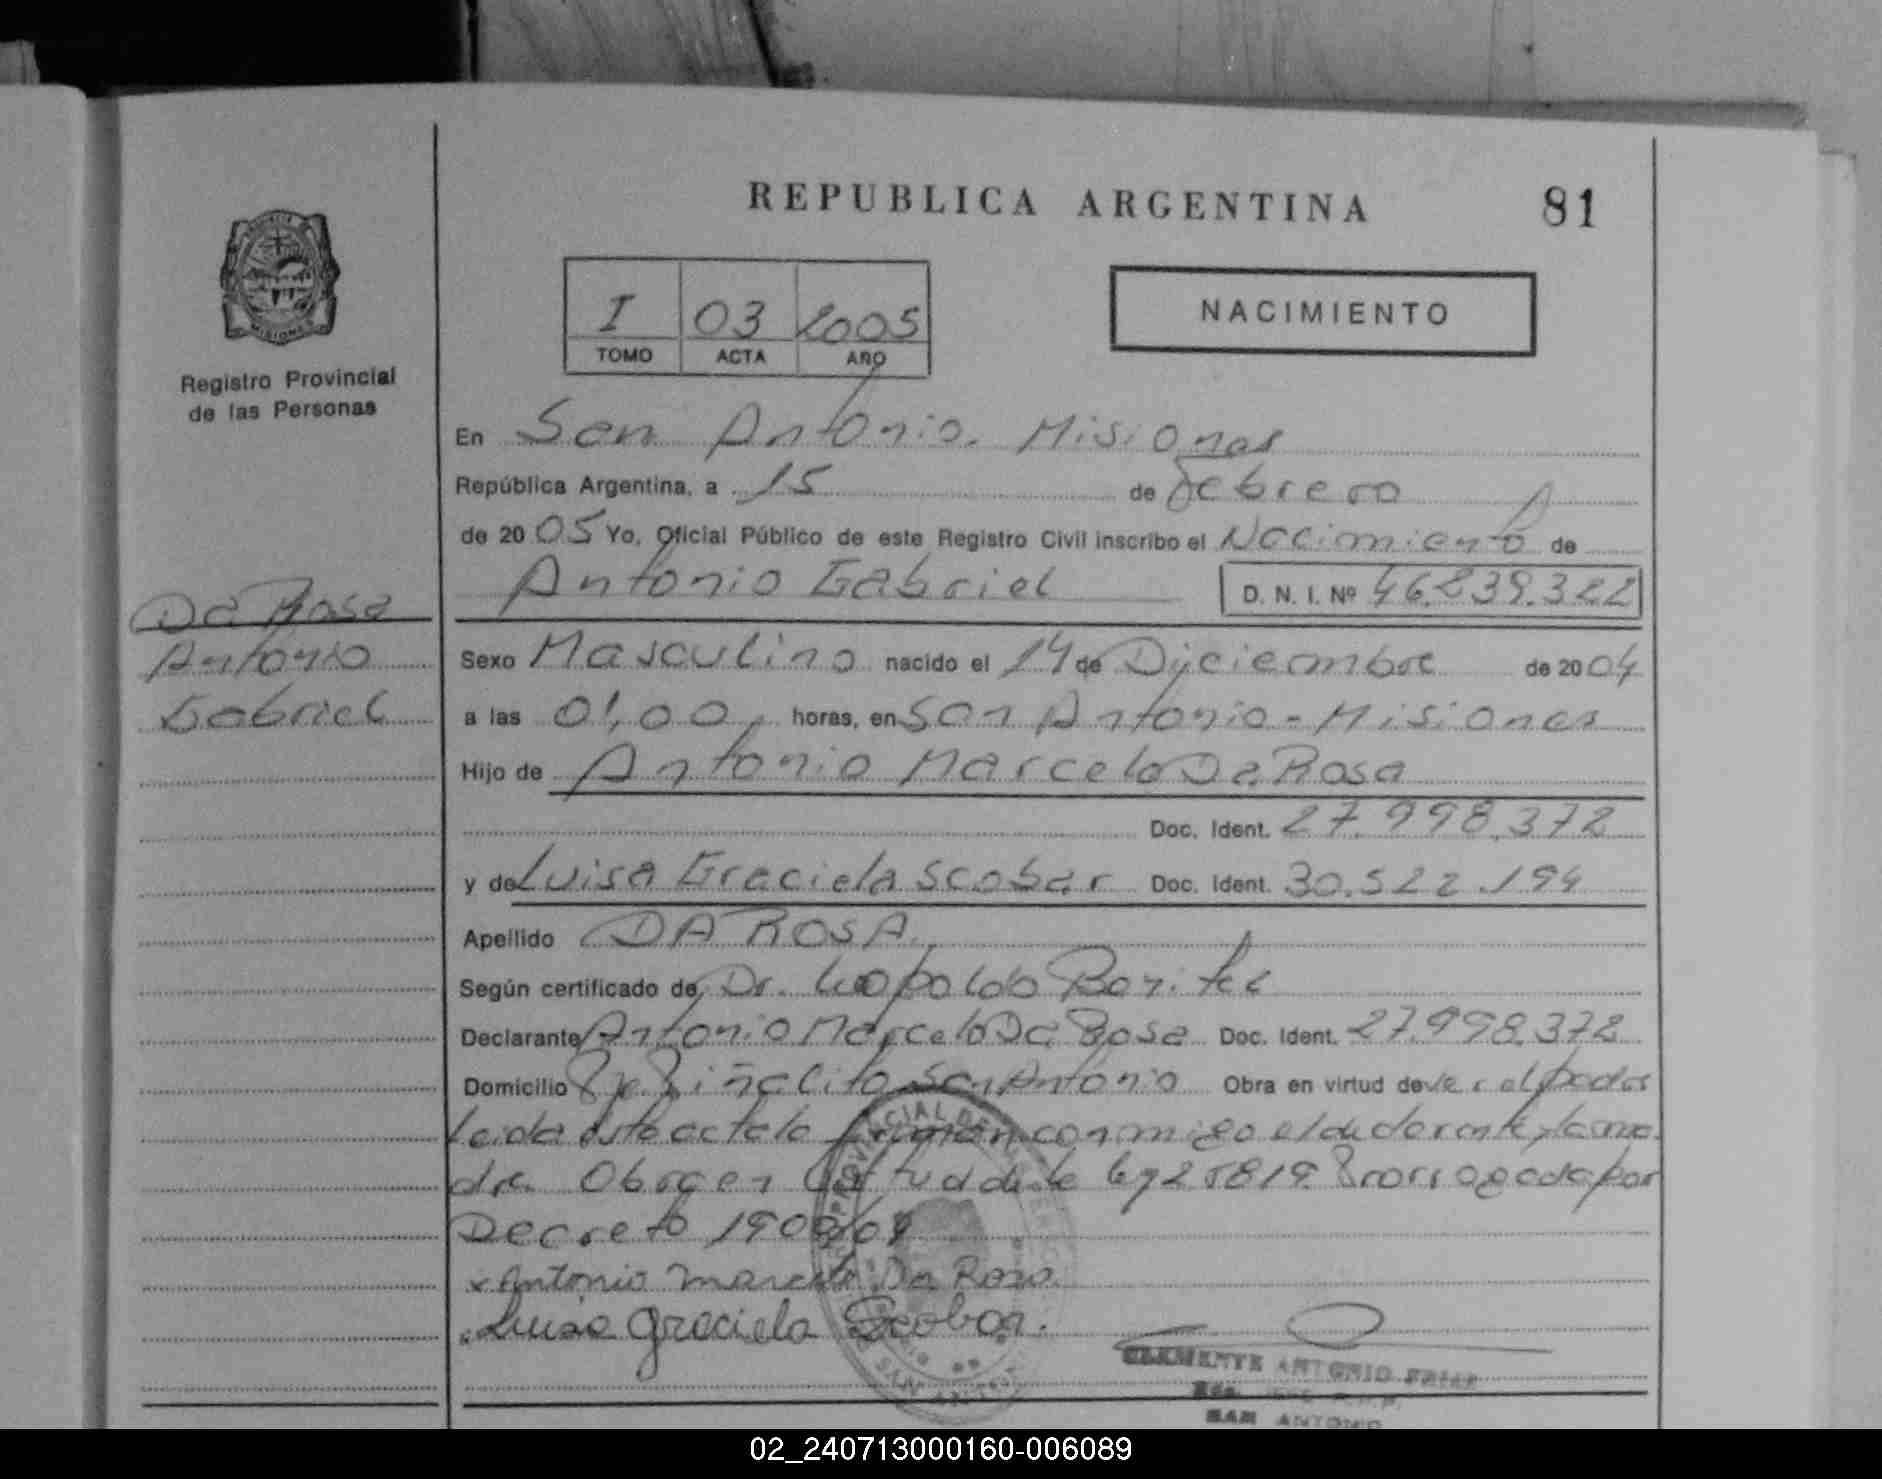 REPUBLICA ARGENTINA
81
MISIONES
Registro Provincial
de las Personas
I 03 2005
TOMO ACTA AÑO
NACIMIENTO
En San Antonio. Misiones
República Argentina, a 15 de Febrero
de 2005 Yo, Oficial Público de este Registro Civil inscribo el Nacimiento de
Antonio Gabriel D. N. I. Nº 46.239.322
Da Rosa
Antonio
Gabriel
Sexo Masculino nacido el 14 de Diciembre de 2004
a las 01,00 horas, en San Antonio - Misiones
Hijo de Antonio Marcelo Da Rosa
Doc. Ident. 27.998.372
y de Luisa Graciela Scobar Doc. Ident. 30.522.194
Apellido DA ROSA
Según certificado de Dr. Leopoldo
Declarante Antonio Marcelo Da Rosa Doc. Ident. 27.998.372
Domicilio Piñalito San Antonio Obra en virtud de
Leida este acta la firman conmigo el declarante y la ma
dre Obra en virtud de la ley 25819 Prorrogada por
Decreto 1908/04
x Antonio Marcelo Da Rosa
Luisa Graciela Scobar.
CLEMENTE ANTONIO
SAN ANTONIO
02_240713000160-006089